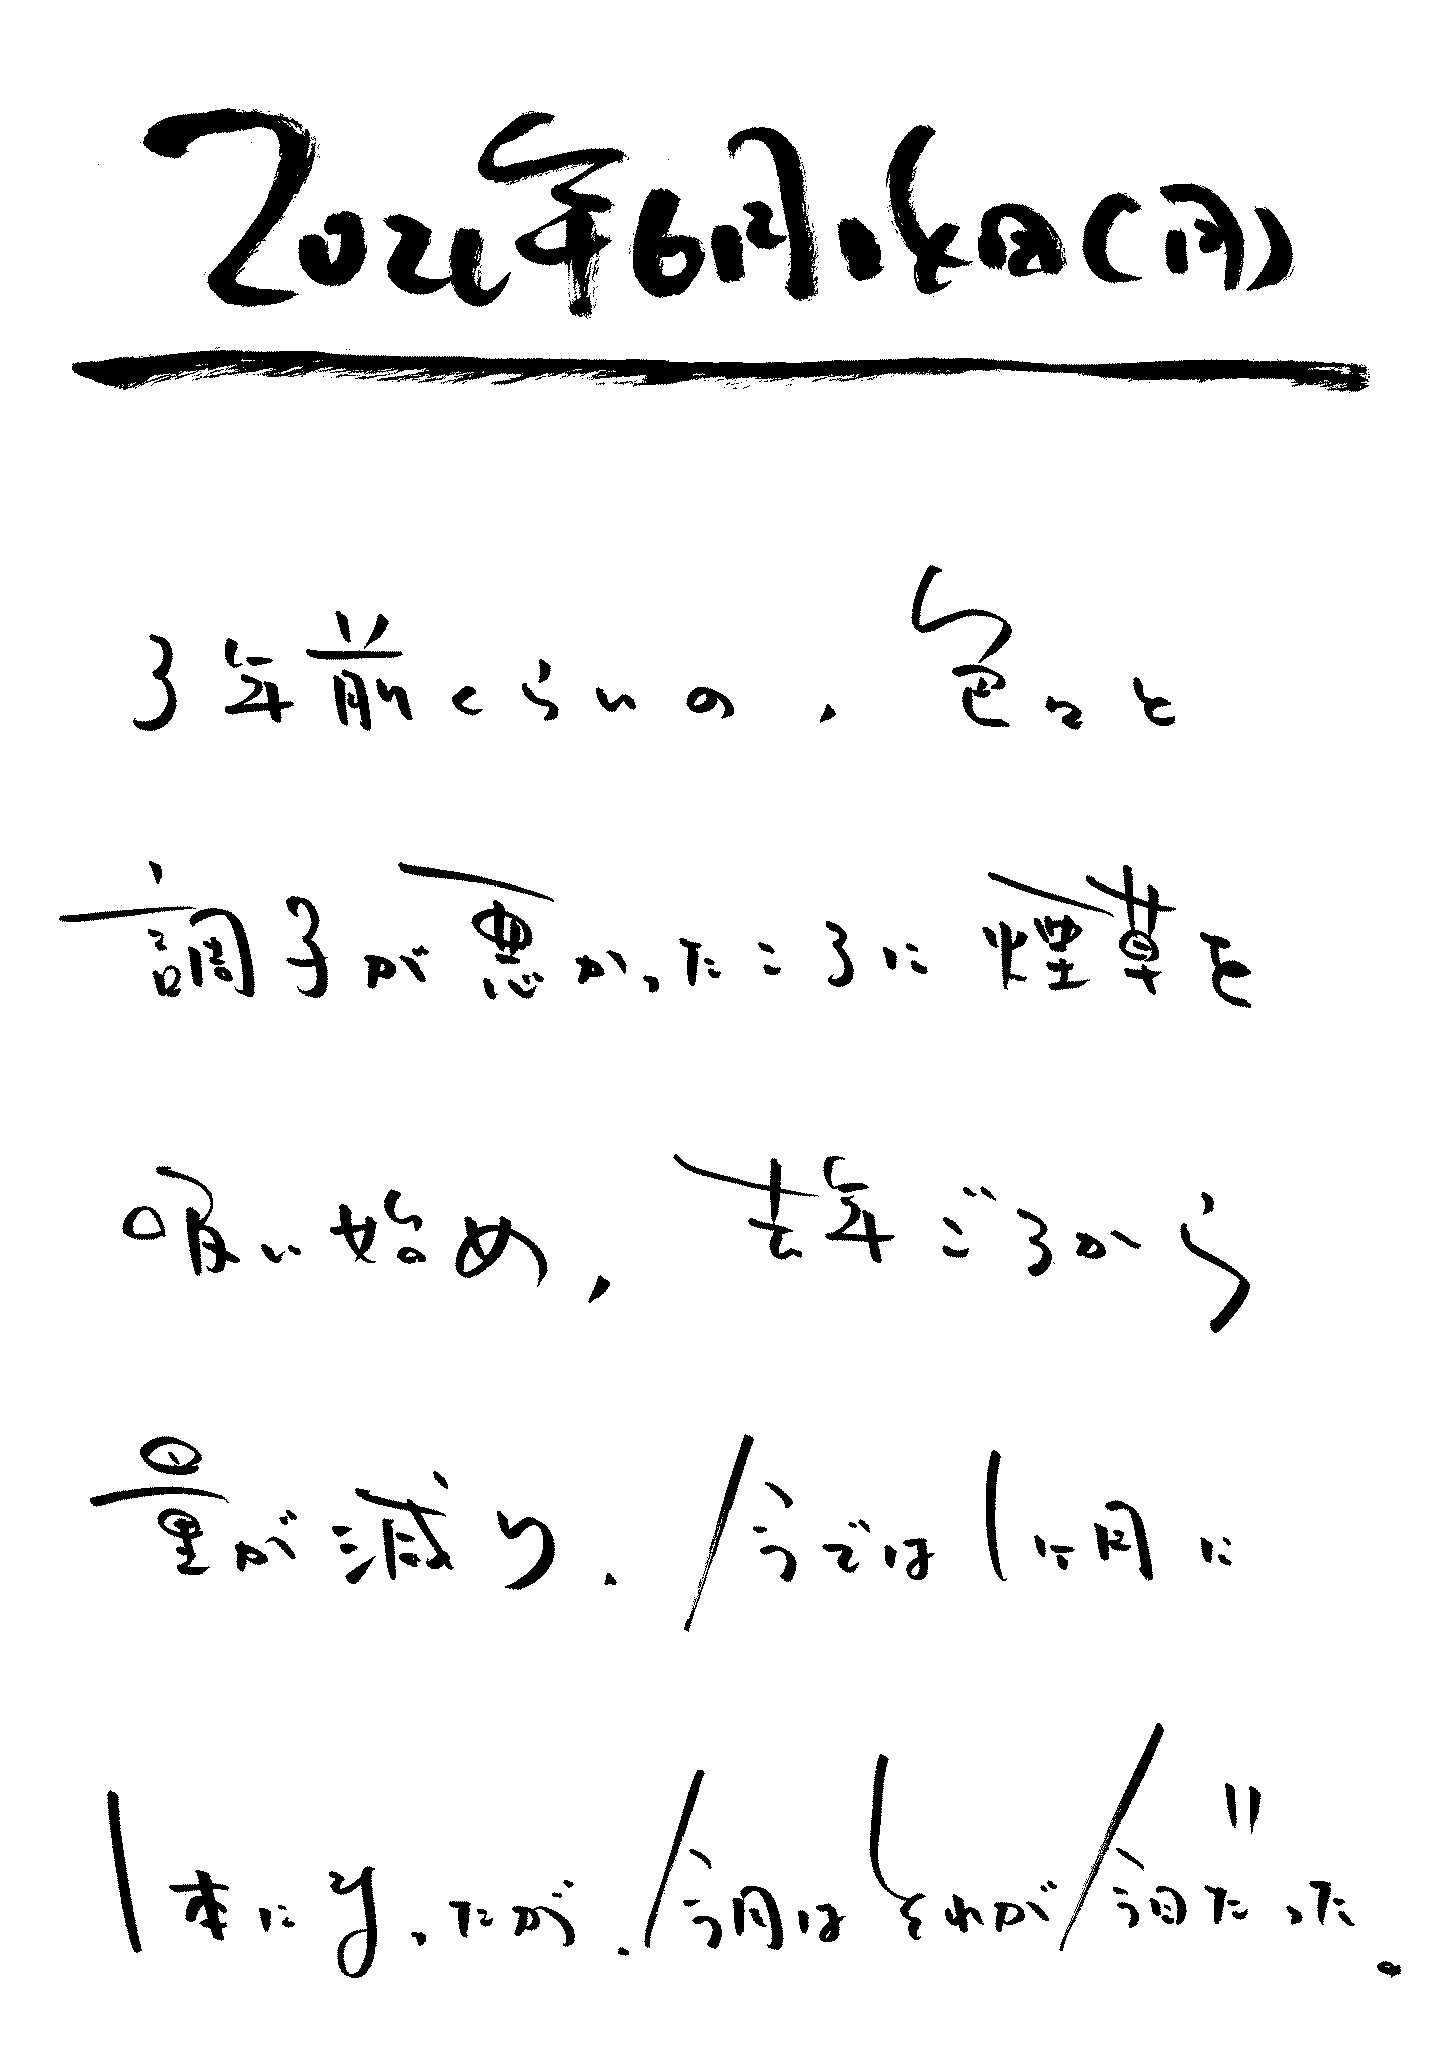 2021年6月14日(月)
3年前くらいの、色々と
調子が悪かったころに煙草を
吸い始め、去年ごろから
量が減り、今では1ヶ月に
1本になったが、今月はそれが今日だった。